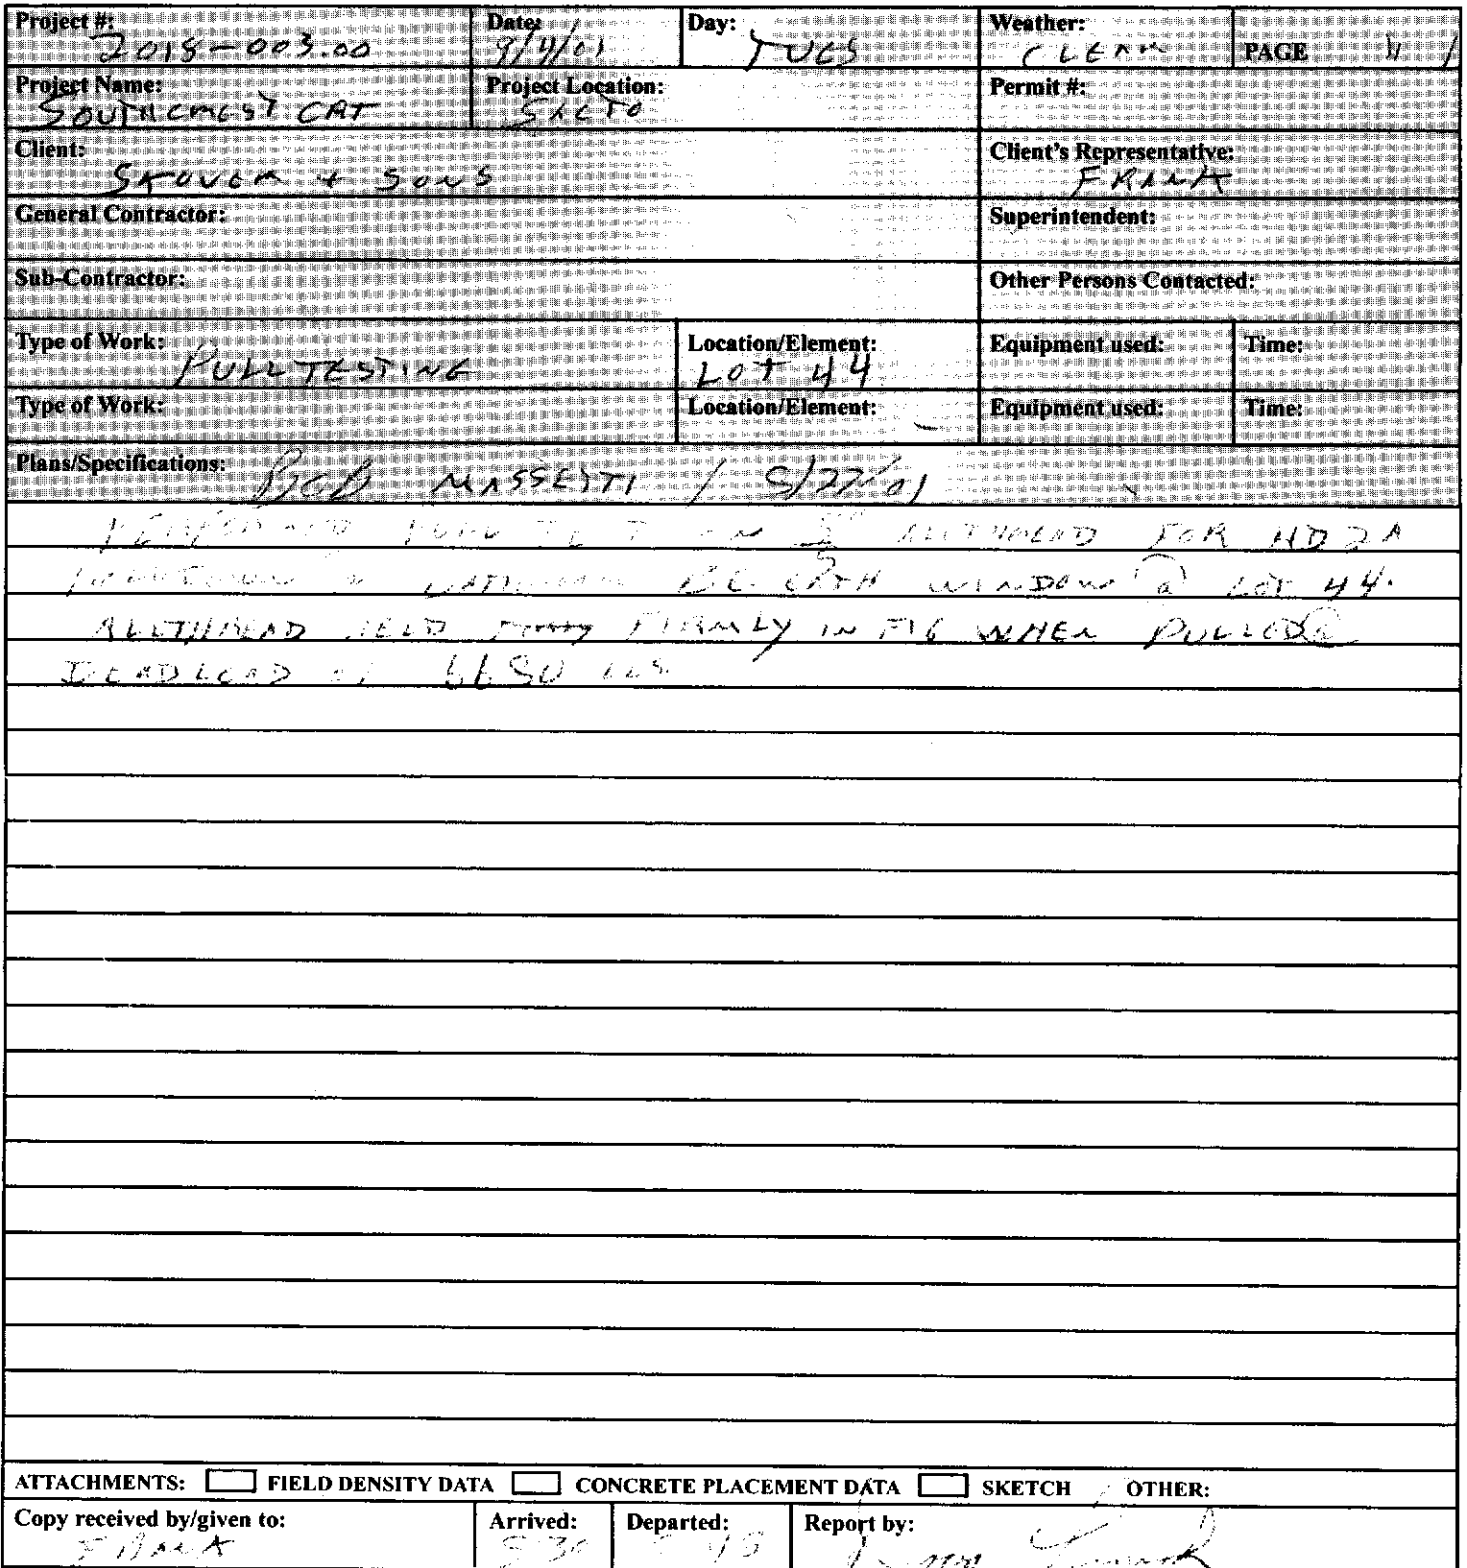 Project #: 2018-003.00 Date: 9/4/01 Day: TUES Weather: CLEAR PAGE 1/1
Project Name: SOUTHCREST CRT Project Location: SACTO Permit #:
Client: SKOVER + SONS Client's Representative: FRANK
General Contractor: Superintendent:
Sub-Contractor: Other Persons Contacted:
Type of Work: PULL TESTING Location/Element: LOT 44 Equipment used: Time:
Type of Work: Location/Element: Equipment used: Time:
Plans/Specifications: BOB MASSETTI / 8/27/01
PERFORMED PULL TEST ON ALLTHREAD FOR HD2A
WINDOW @ LOT 44.
ALLTHREAD HELD FIRMLY IN FTG WHEN PULLED @
DEADLOAD OF LBS
ATTACHMENTS: FIELD DENSITY DATA CONCRETE PLACEMENT DATA SKETCH OTHER:
Copy received by/given to: FRANK Arrived: Departed: Report by: